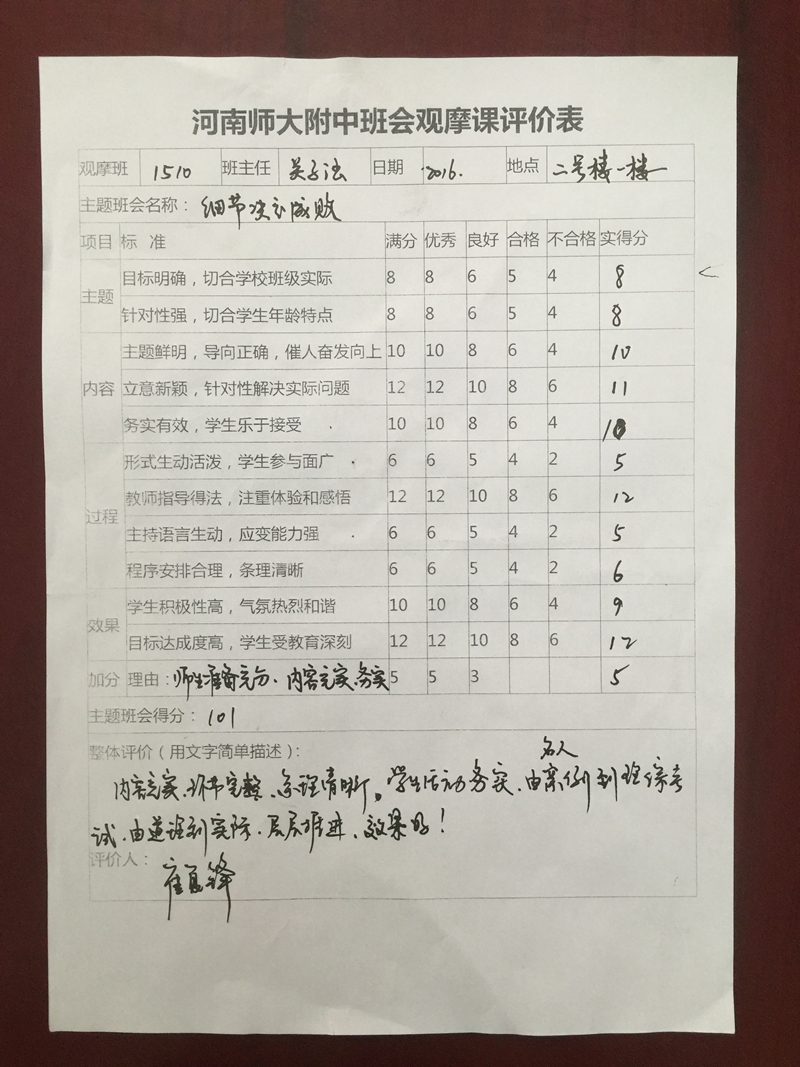 河南师大附中班会观摩课评价表
观摩班 1510 班主任 吴子法 日期 2016. 地点 二号楼一楼
主题班会名称： 细节决定成败
项目 标 准 满分 优秀 良好 合格 不合格 实得分
主题 目标明确，切合学校班级实际 8 8 6 5 4 8
针对性强，切合学生年龄特点 8 8 6 5 4 8
内容 主题鲜明，导向正确，催人奋发向上 10 10 8 6 4 10
立意新颖，针对性解决实际问题 12 12 10 8 6 11
务实有效，学生乐于接受 10 10 8 6 4 10
过程 形式生动活泼，学生参与面广 6 6 5 4 2 5
教师指导得法，注重体验和感悟 12 12 10 8 6 12
主持语言生动，应变能力强 6 6 5 4 2 5
程序安排合理，条理清晰 6 6 5 4 2 6
效果 学生积极性高，气氛热烈和谐 10 10 8 6 4 9
目标达成度高，学生受教育深刻 12 12 10 8 6 12
加分 理由：师生准备充分、内容充实务实 5 5 3 5
主题班会得分： 101
整体评价（用文字简单描述）：
内容充实、环节完整、条理清晰。学生活动务实、由名人案例到班级考
试、由道理到实际、层层推进、效果好！
评价人：